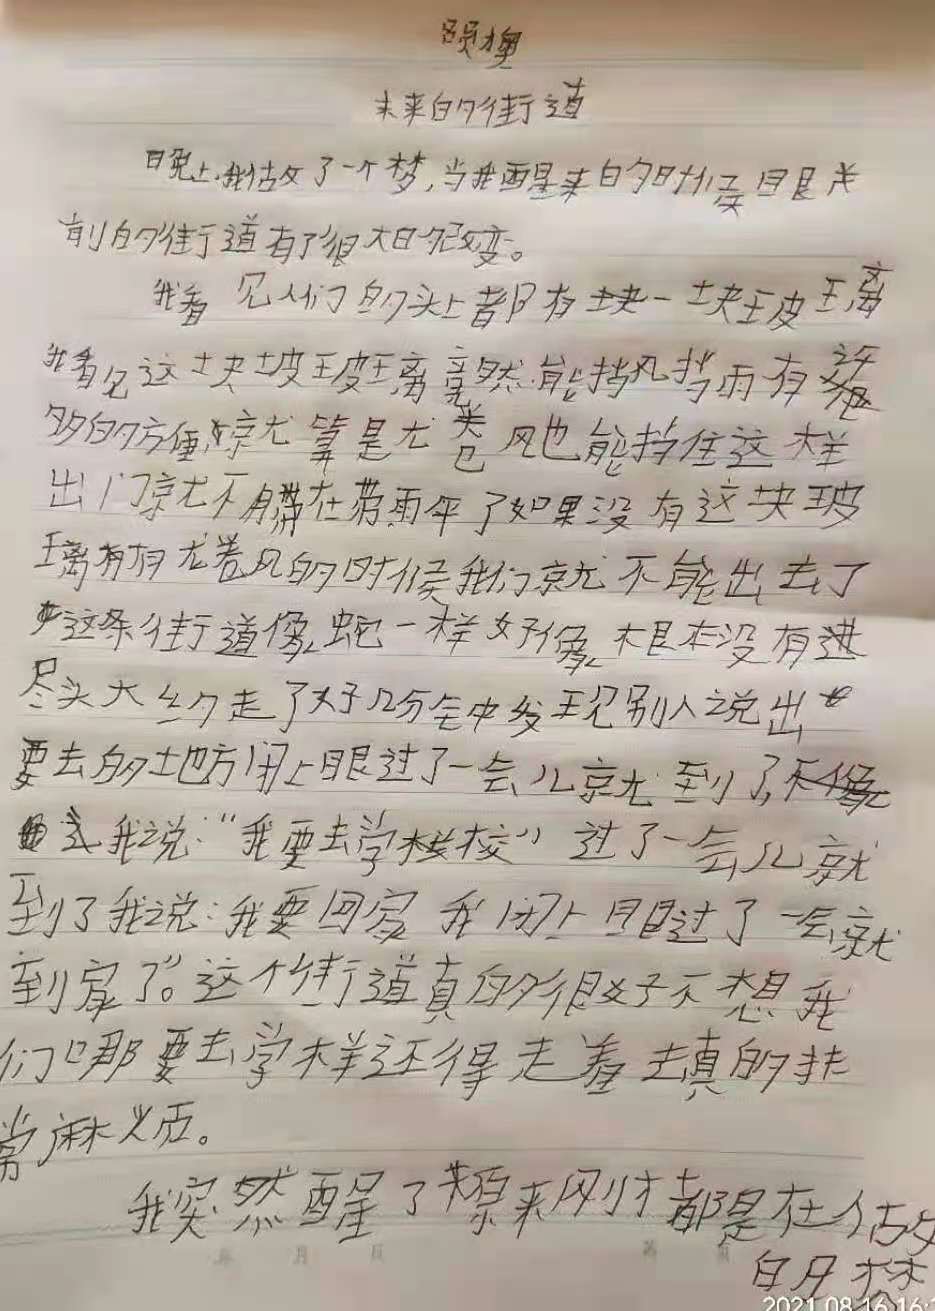 未来的街道
晚上,我做了一个梦,当我醒来的时候眼
前的街道有了很大的改变。
我看见人们的头上都有块一块玻璃
我看见这块玻璃竟然能挡风挡雨有许
多的方便,就算是龙卷风也能挡住这样
出门就不用带雨伞了如果没有这块玻
璃有龙卷风的时候我们就不能出去了
这条街道像蛇一样好像根本没有进
尽头大约走了好几分钟发现别人说出
要去的地方闭上眼过了一会儿就到了,
我说:“我要去学校”过了一会儿就
到了我说:我要回家我闭上眼过了一会就
到家了”。这个街道真的很好不想我
们那要去学样还得走着去真的非
常麻烦。
我突然醒了原来刚才都是在做
白日梦
2021.08.16 16: